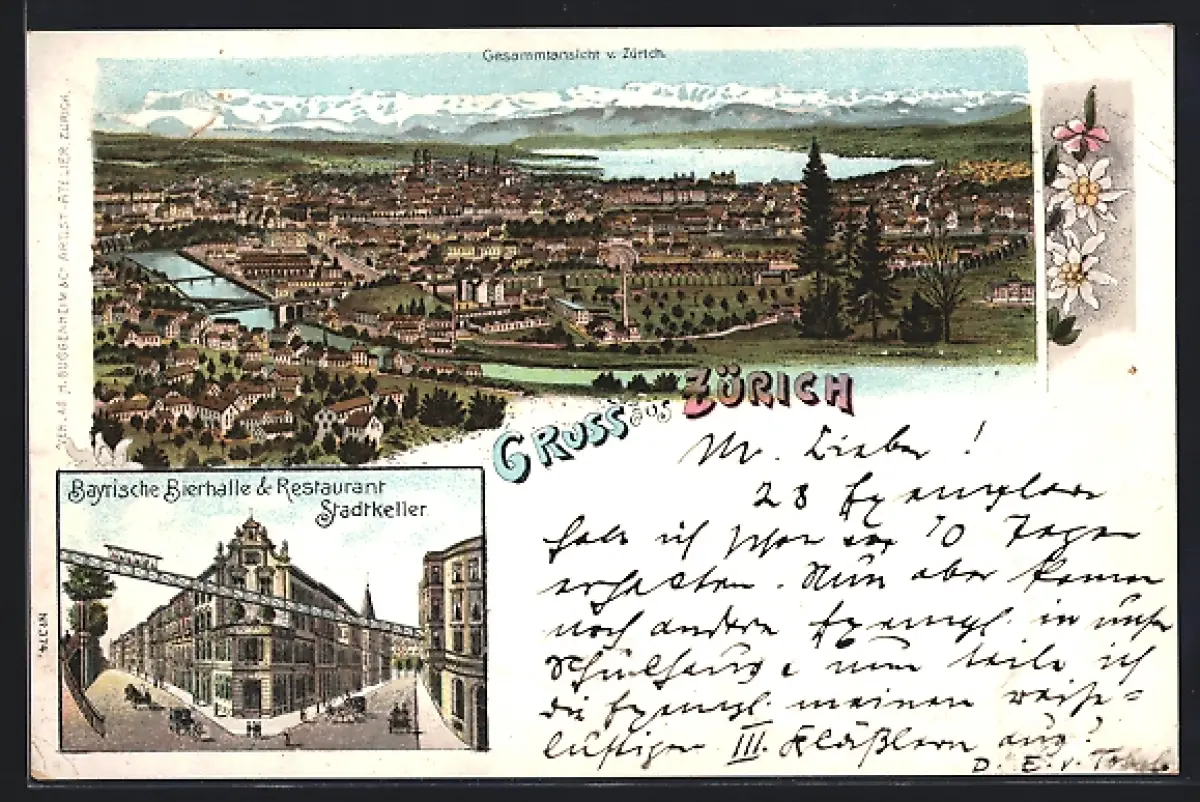 Gesammtansicht v. Zürich.
VERLAG H. GUGGENHEIM & Co ARTIST. ATELIER ZÜRICH.
GRUSS aus ZÜRICH
Bayrische Bierhalle & Restaurant
Stadtkeller
No 374.
M. Lieber!
28 Exemplare
habe ich schon vor 10 Tagen
erhalten. Nun aber kamen
noch andere Exempl. in unser
Schulhaus & nun teile ich
die Exempl. meinen
lustigen III. Klässlern aus!
D. E. v.